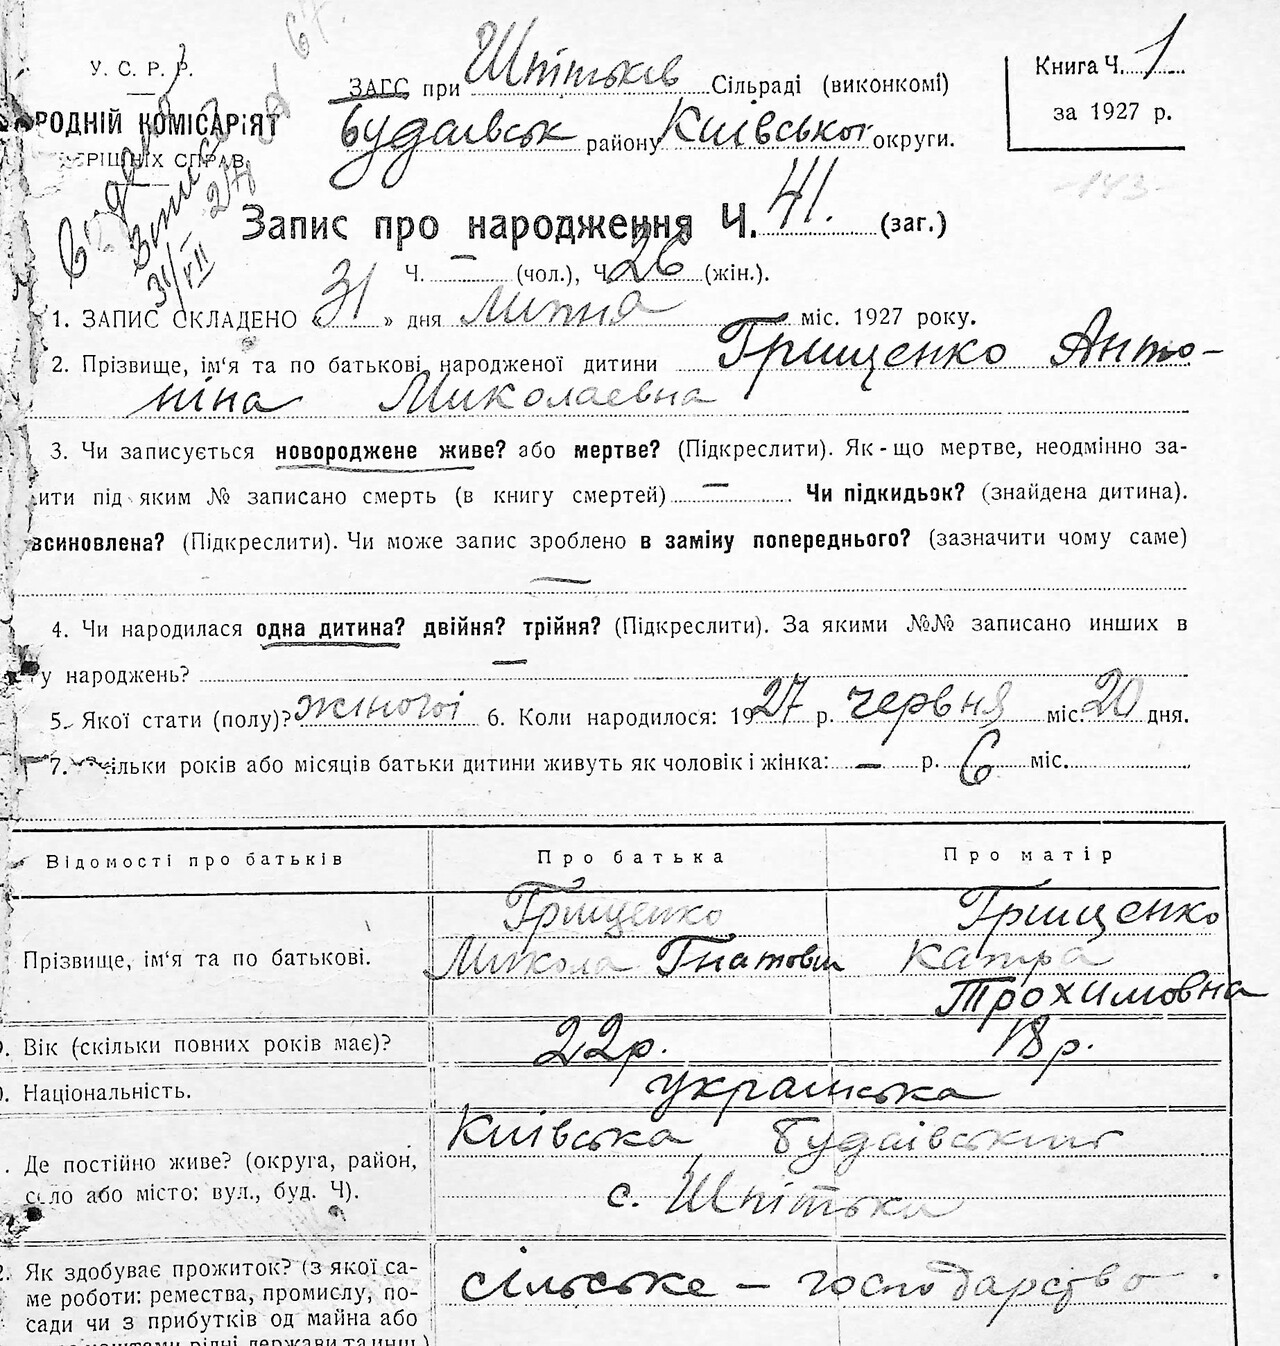 У. С. Р. Р.
РОДНІЙ КОМІСАРІЯТ
СПРАВ
ЗАГС при Шпітьків Сільраді (виконкомі)
Будаївськ району Київської округи.
Книга Ч. 1
за 1927 р.
-143-
Запис про народження Ч. 41. (заг.)
Ч. — (чол.), Ч 26 (жін.).
31/VII 27
1. ЗАПИС СКЛАДЕНО « 31 » дня Липня міс. 1927 року.
2. Прізвище, ім‘я та по батькові народженої дитини Грищенко Анто-
ніна Миколаєвна
3. Чи записується новороджене живе? або мертве? (Підкреслити). Як-що мертве, неодмінно за-
ити під яким № записано смерть (в книгу смертей) — Чи підкидьок? (знайдена дитина).
всиновлена? (Підкреслити). Чи може запис зроблено в заміну попереднього? (зазначити чому саме)
—
4. Чи народилася одна дитина? двійня? трійня? (Підкреслити). За якими №№ записано инших в
у народжень? —
5. Якої стати (полу)? жіночої 6. Коли народилося: 1927 р. червня міс. 20 дня.
7. Скільки років або місяців батьки дитини живуть як чоловік і жінка: — р. 6 міс.
Відомості про батьків Про батька Про матір
Прізвище, ім‘я та по батькові.
Грищенко Микола Гнатович
Грищенко Катря Трохимовна
9. Вік (скільки повних років має)? 22р. 18 р.
Національність. українська
Де постійно живе? (округа, район,
село або місто: вул., буд. Ч).
Київська Будаївський
с. Шпітька
Як здобуває прожиток? (з якої са-
ме роботи: ремества, промислу, по-
сади чи з прибутків од майна або
коштами рідні держави та инш.)
сільське — господарство